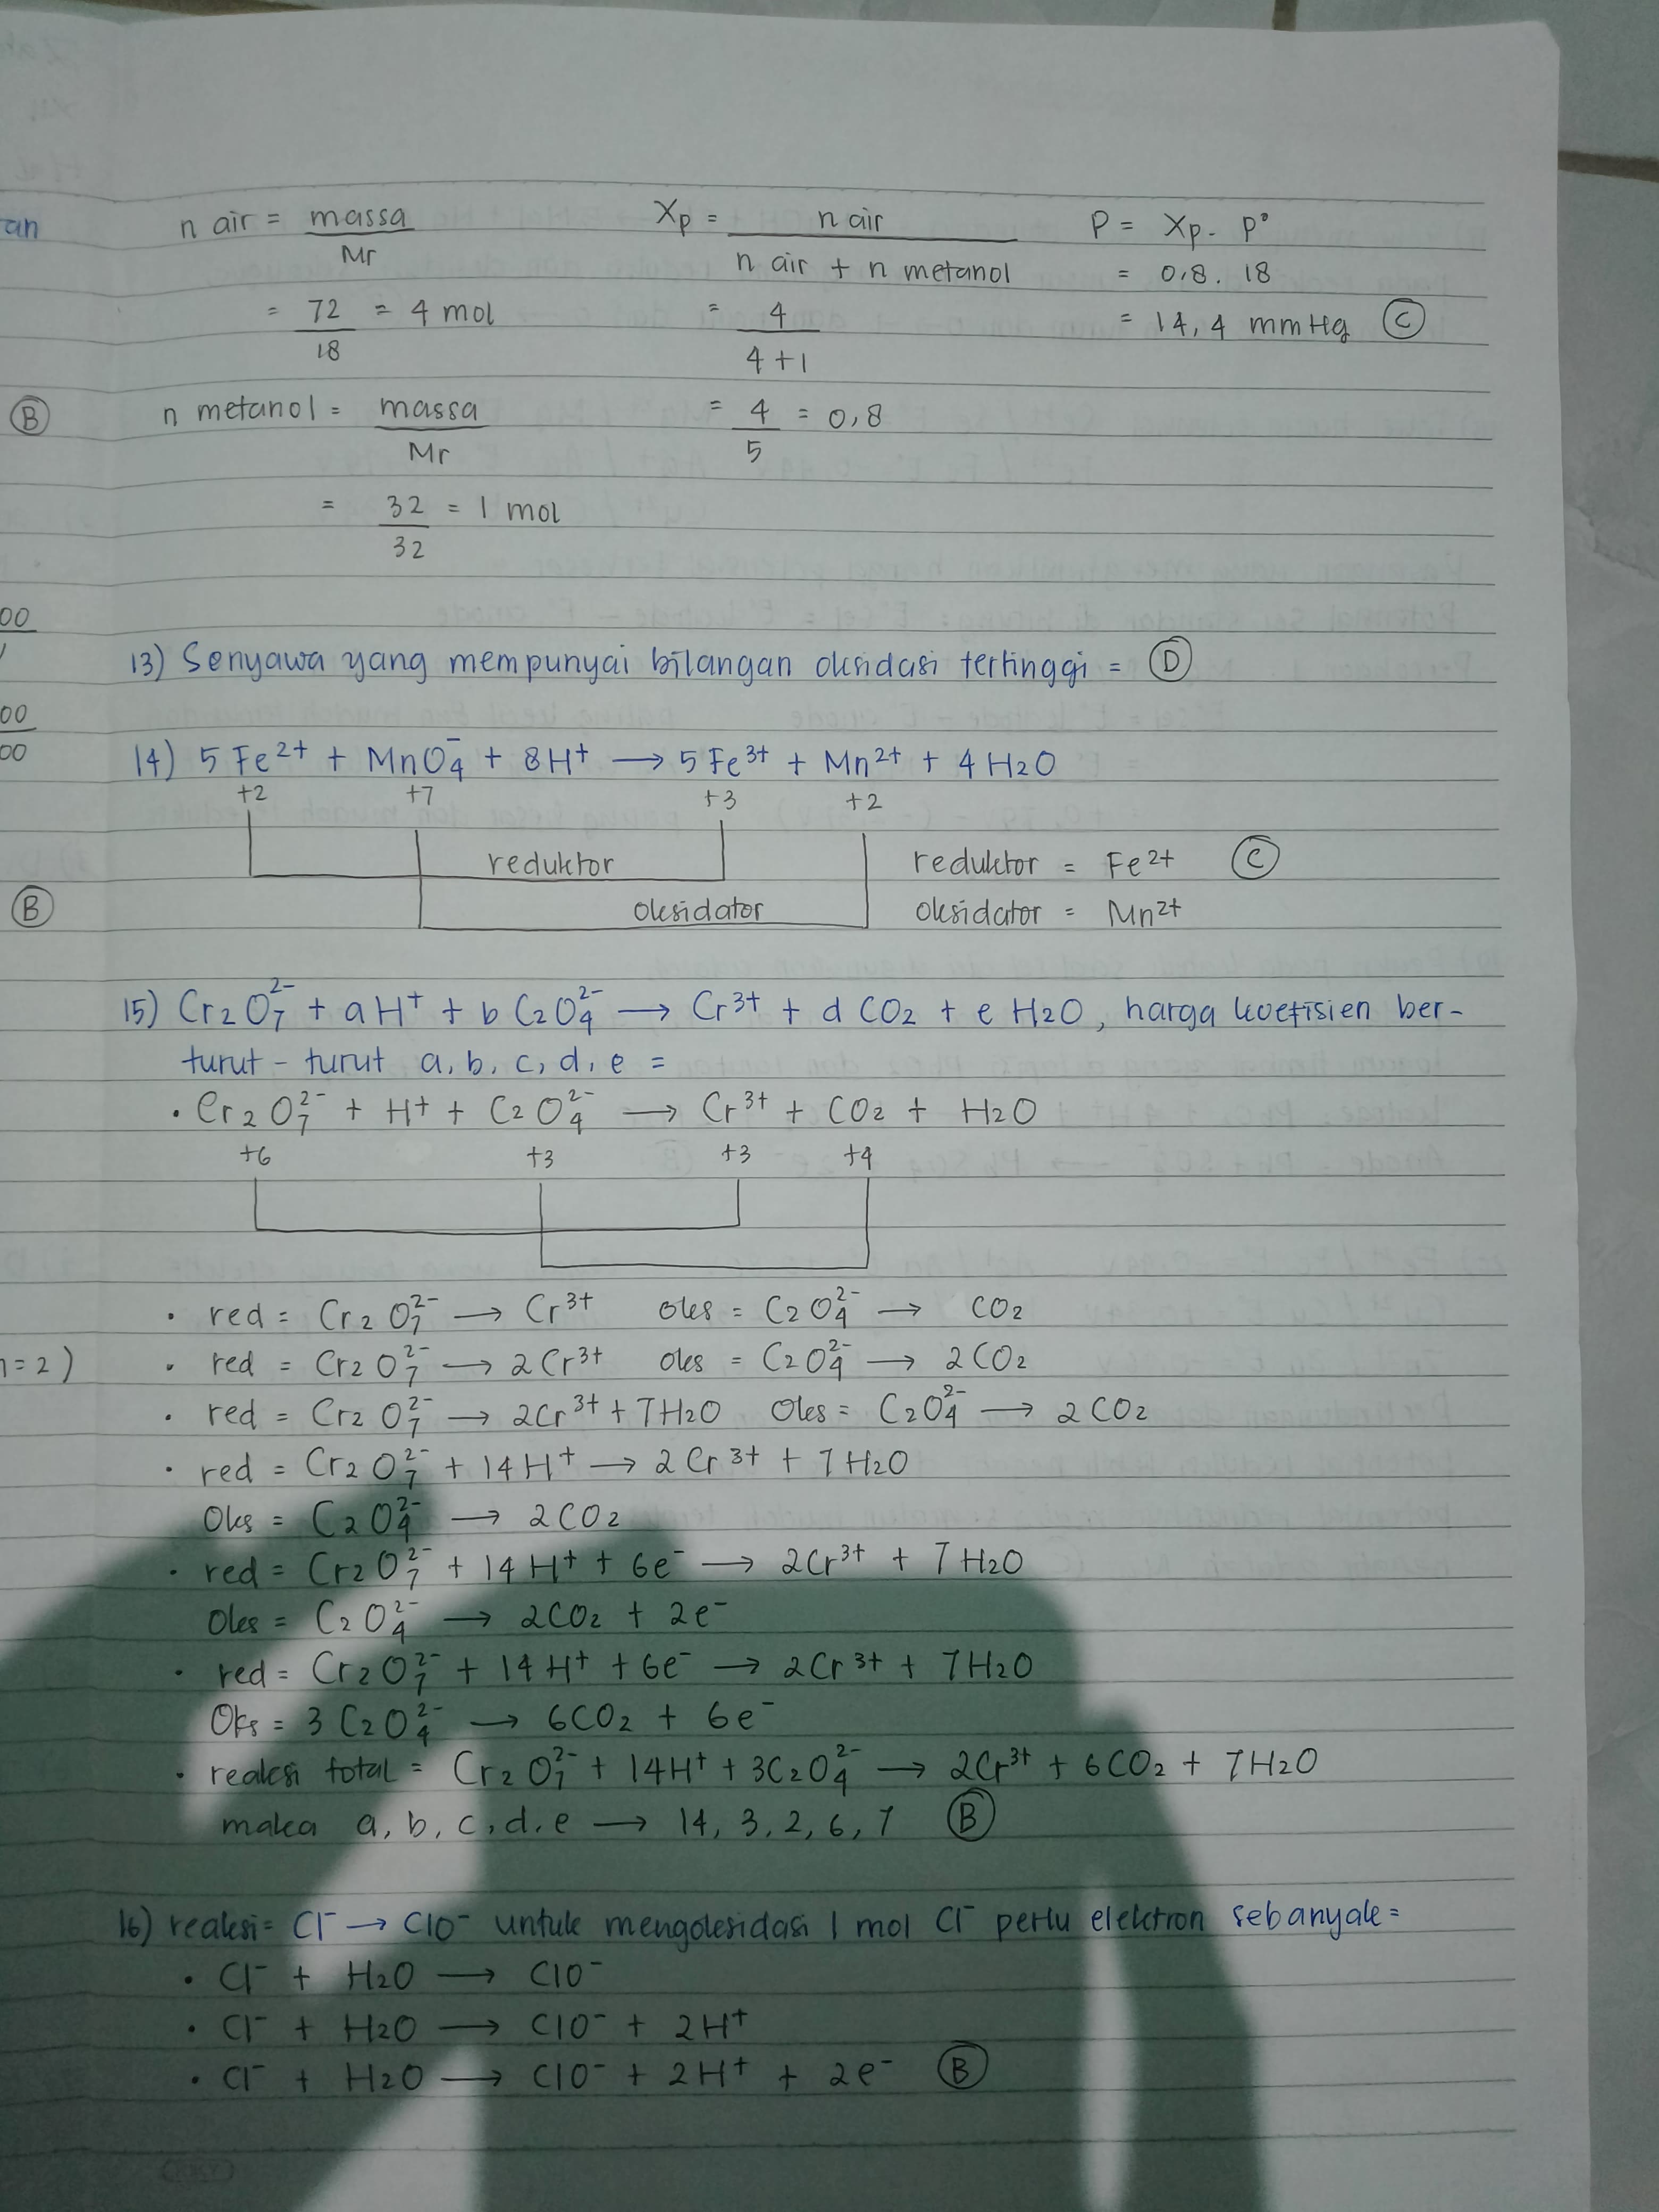 an
n air = massa / Mr
= 72 / 18 = 4 mol
(B) n metanol = massa / Mr
= 32 / 32 = 1 mol
Xp = n air / n air + n metanol
= 4 / 4 + 1
= 4 / 5 = 0,8
P = Xp . P°
= 0,8 . 18
= 14,4 mmHg (C)
00
13) Senyawa yang mempunyai bilangan oksidasi tertinggi = (D)
00
00
14) 5 Fe²⁺ + MnO₄⁻ + 8H⁺ → 5 Fe³⁺ + Mn²⁺ + 4 H₂O
+2 +7 +3 +2
reduktor reduktor = Fe²⁺ (C)
(B) oksidator oksidator = Mn²⁺
15) Cr₂O₇²⁻ + a H⁺ + b C₂O₄²⁻ → Cr³⁺ + d CO₂ + e H₂O, harga koefisien ber-
turut - turut a, b, c, d, e =
• Cr₂O₇²⁻ + H⁺ + C₂O₄²⁻ → Cr³⁺ + CO₂ + H₂O
+6 +3 +3 +4
• red = Cr₂O₇²⁻ → Cr³⁺ oks = C₂O₄²⁻ → CO₂
n = 2)
• red = Cr₂O₇²⁻ → 2Cr³⁺ oks = C₂O₄²⁻ → 2CO₂
• red = Cr₂O₇²⁻ → 2Cr³⁺ + 7H₂O Oks = C₂O₄²⁻ → 2CO₂
• red = Cr₂O₇²⁻ + 14H⁺ → 2Cr³⁺ + 7H₂O
Oks = C₂O₄²⁻ → 2CO₂
• red = Cr₂O₇²⁻ + 14H⁺ + 6e⁻ → 2Cr³⁺ + 7H₂O
Oks = C₂O₄²⁻ → 2CO₂ + 2e⁻
• red = Cr₂O₇²⁻ + 14H⁺ + 6e⁻ → 2Cr³⁺ + 7H₂O
Oks = 3C₂O₄²⁻ → 6CO₂ + 6e⁻
• reaksi total = Cr₂O₇²⁻ + 14H⁺ + 3C₂O₄²⁻ → 2Cr³⁺ + 6CO₂ + 7H₂O
maka a, b, c, d, e → 14, 3, 2, 6, 7 (B)
16) reaksi = Cl⁻ → ClO⁻ untuk mengoksidasi 1 mol Cl⁻ perlu elektron sebanyak =
• Cl⁻ + H₂O → ClO⁻
• Cl⁻ + H₂O → ClO⁻ + 2H⁺
• Cl⁻ + H₂O → ClO⁻ + 2H⁺ + 2e⁻ (B)